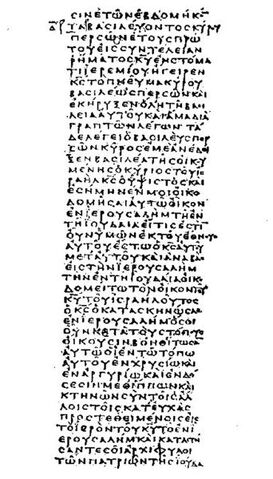 CINETΩNEBΔOMHKO̅
ΤΑΒΑϹΙΛΕΥΟΝΤΟϹΚΥΡΟΥ
ΠΕΡϹΩΝΕΤΟΥϹΠΡΩ
ΤΟΥΕΙϹϹΥΝΤΕΛΕΙΑΝ
ΡΗΜΑΤΟϹΚ̅Υ̅ΕΝϹΤΟΜΑ
ΤΙΙΕΡΕΜΙΟΥΗΓΕΙΡΕΝ
Κ̅Ϲ̅ΤΟΠΝΕΥΜΑΚΥΡΟΥ
ΒΑϹΙΛΕΩϹΠΕΡϹΩΝΚΑΙ
ΕΚΗΡΥΞΕΝΟΛΗΤΗΒΑϹΙ
ΛΕΙΑΑΥΤΟΥΚΑΙΑΜΑΔΙΑ
ΓΡΑΠΤΩΝΛΕΓΩΝΤΑ
ΔΕΛΕΓΕΙΟΒΑϹΙΛΕΥϹΠΕΡ
ϹΩΝΚΥΡΟϹΕΜΕΑΝΕΔΕΙ
ΞΕΝΒΑϹΙΛΕΑΤΗϹΟΙΚΟΥ
ΜΕΝΗϹΟΚΥΡΙΟϹΤΟΥΙϹ
ΡΑΗΛΚ̅Ϲ̅ΟΥΨΙϹΤΟϹΚΑΙ
ΕϹΗΜΗΝΕΝΜΟΙΟΙΚΟ
ΔΟΜΗϹΑΙΑΥΤΩΟΙΚΟΝ
ΕΝΙΕΡΟΥϹΑΛΗΜΤΗΕΝ
ΤΗΙΟΥΔΑΙΑΕΙΤΙϹΕϹΤΙ̅
ΟΥΝΥΜΩΝΕΚΤΟΥΕΘΝΟΥϹ
ΑΥΤΟΥΕϹΤΩΟΚ̅Ϲ̅ΑΥΤΟΥ
ΜΕΤΑΥΤΟΥΚΑΙΑΝΑΒΑϹ
ΕΙϹΤΗΝΙΕΡΟΥϹΑΛΗΜ
ΤΗΝΕΝΤΗΙΟΥΔΑΙΑΟΙΚΟ
ΔΟΜΕΙΤΩΤΟΝΟΙΚΟΝΤΟΥ
Κ̅Υ̅ΤΟΥΙϹΡΑΗΛΟΥΤΟϹ
ΟΚ̅Ϲ̅ΟΚΑΤΑϹΚΗΝΩϹΑϹ
ΕΝΙΕΡΟΥϹΑΛΗΜΟϹΟΙ
ΟΥΝΚΑΤΑΤΟΥϹΤΟΠΟΥϹ
ΟΙΚΟΥϹΙΝΒΟΗΘΕΙΤΩϹΑ̅
ΑΥΤΩΟΙΕΝΤΩΤΟΠΩ
ΑΥΤΟΥΕΝΧΡΥϹΙΩΚΑΙ
ΕΝΑΡΓΥΡΙΩΚΑΙΕΝΔΟ
ϹΕϹΙΝΜΕΘΙΠΠΩΝΚΑΙ
ΚΤΗΝΩΝϹΥΝΤΟΙϹΑΛ
ΛΟΙϹΤΟΙϹΚΑΤΕΥΧΑϹ
ΠΡΟϹΤΕΘΕΙΜΕΝΟΙϹΕΙϹ
ΤΟΙΕΡΟΝΤΟΥΚ̅Υ̅ΤΟΕΝΙ
ΕΡΟΥϹΑΛΗΜΚΑΙΚΑΤΑϹΤΗ
ϹΑΝΤΕϹΟΙΑΡΧΙΦΥΛΟΙ
ΤΩΝΠΑΤΡΙΩΝΤΗϹΙΟΥΔΑ